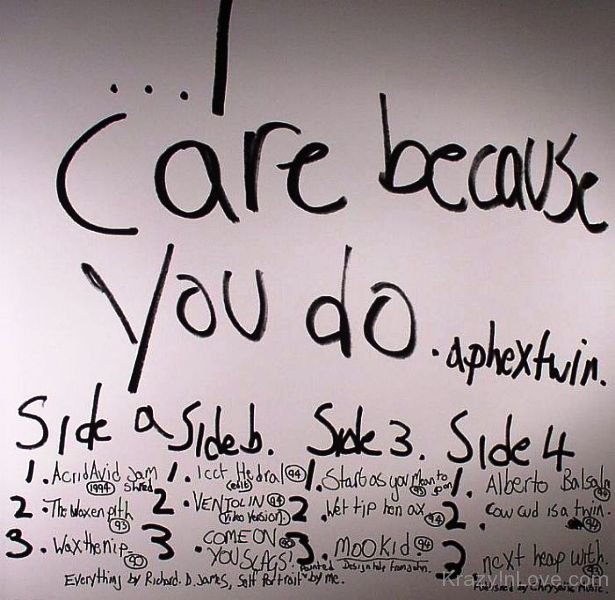 ...I
Care because
you do.
.aphextwin.
Side a
1. AcridAvid Jam
1994 Shred
2. The Waxen pith
93
3. Wax the nip
90
Side b.
1. Icct Hedral 94
(edit)
2. VENTOLIN 94
(Video Version)
3. COME ON
YOU SLAGS! 90
Side 3.
1. Start as you Mean to
go on 93
2. Wet tip hen ax. 94
3. Mookid. 94
Side 4
1. Alberto Balsalm
2. Cow cud is a twin.
94
3. next heap with.
93
Everything by Richard. D. James, Self Portrait painted by me.
Design help from John.
Published by Chrysalis Music.
KrazyInLove.com